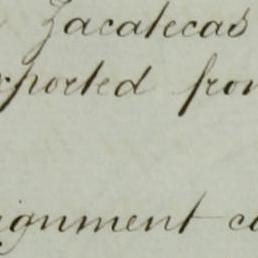 Zacatecas
xported from
ignment co